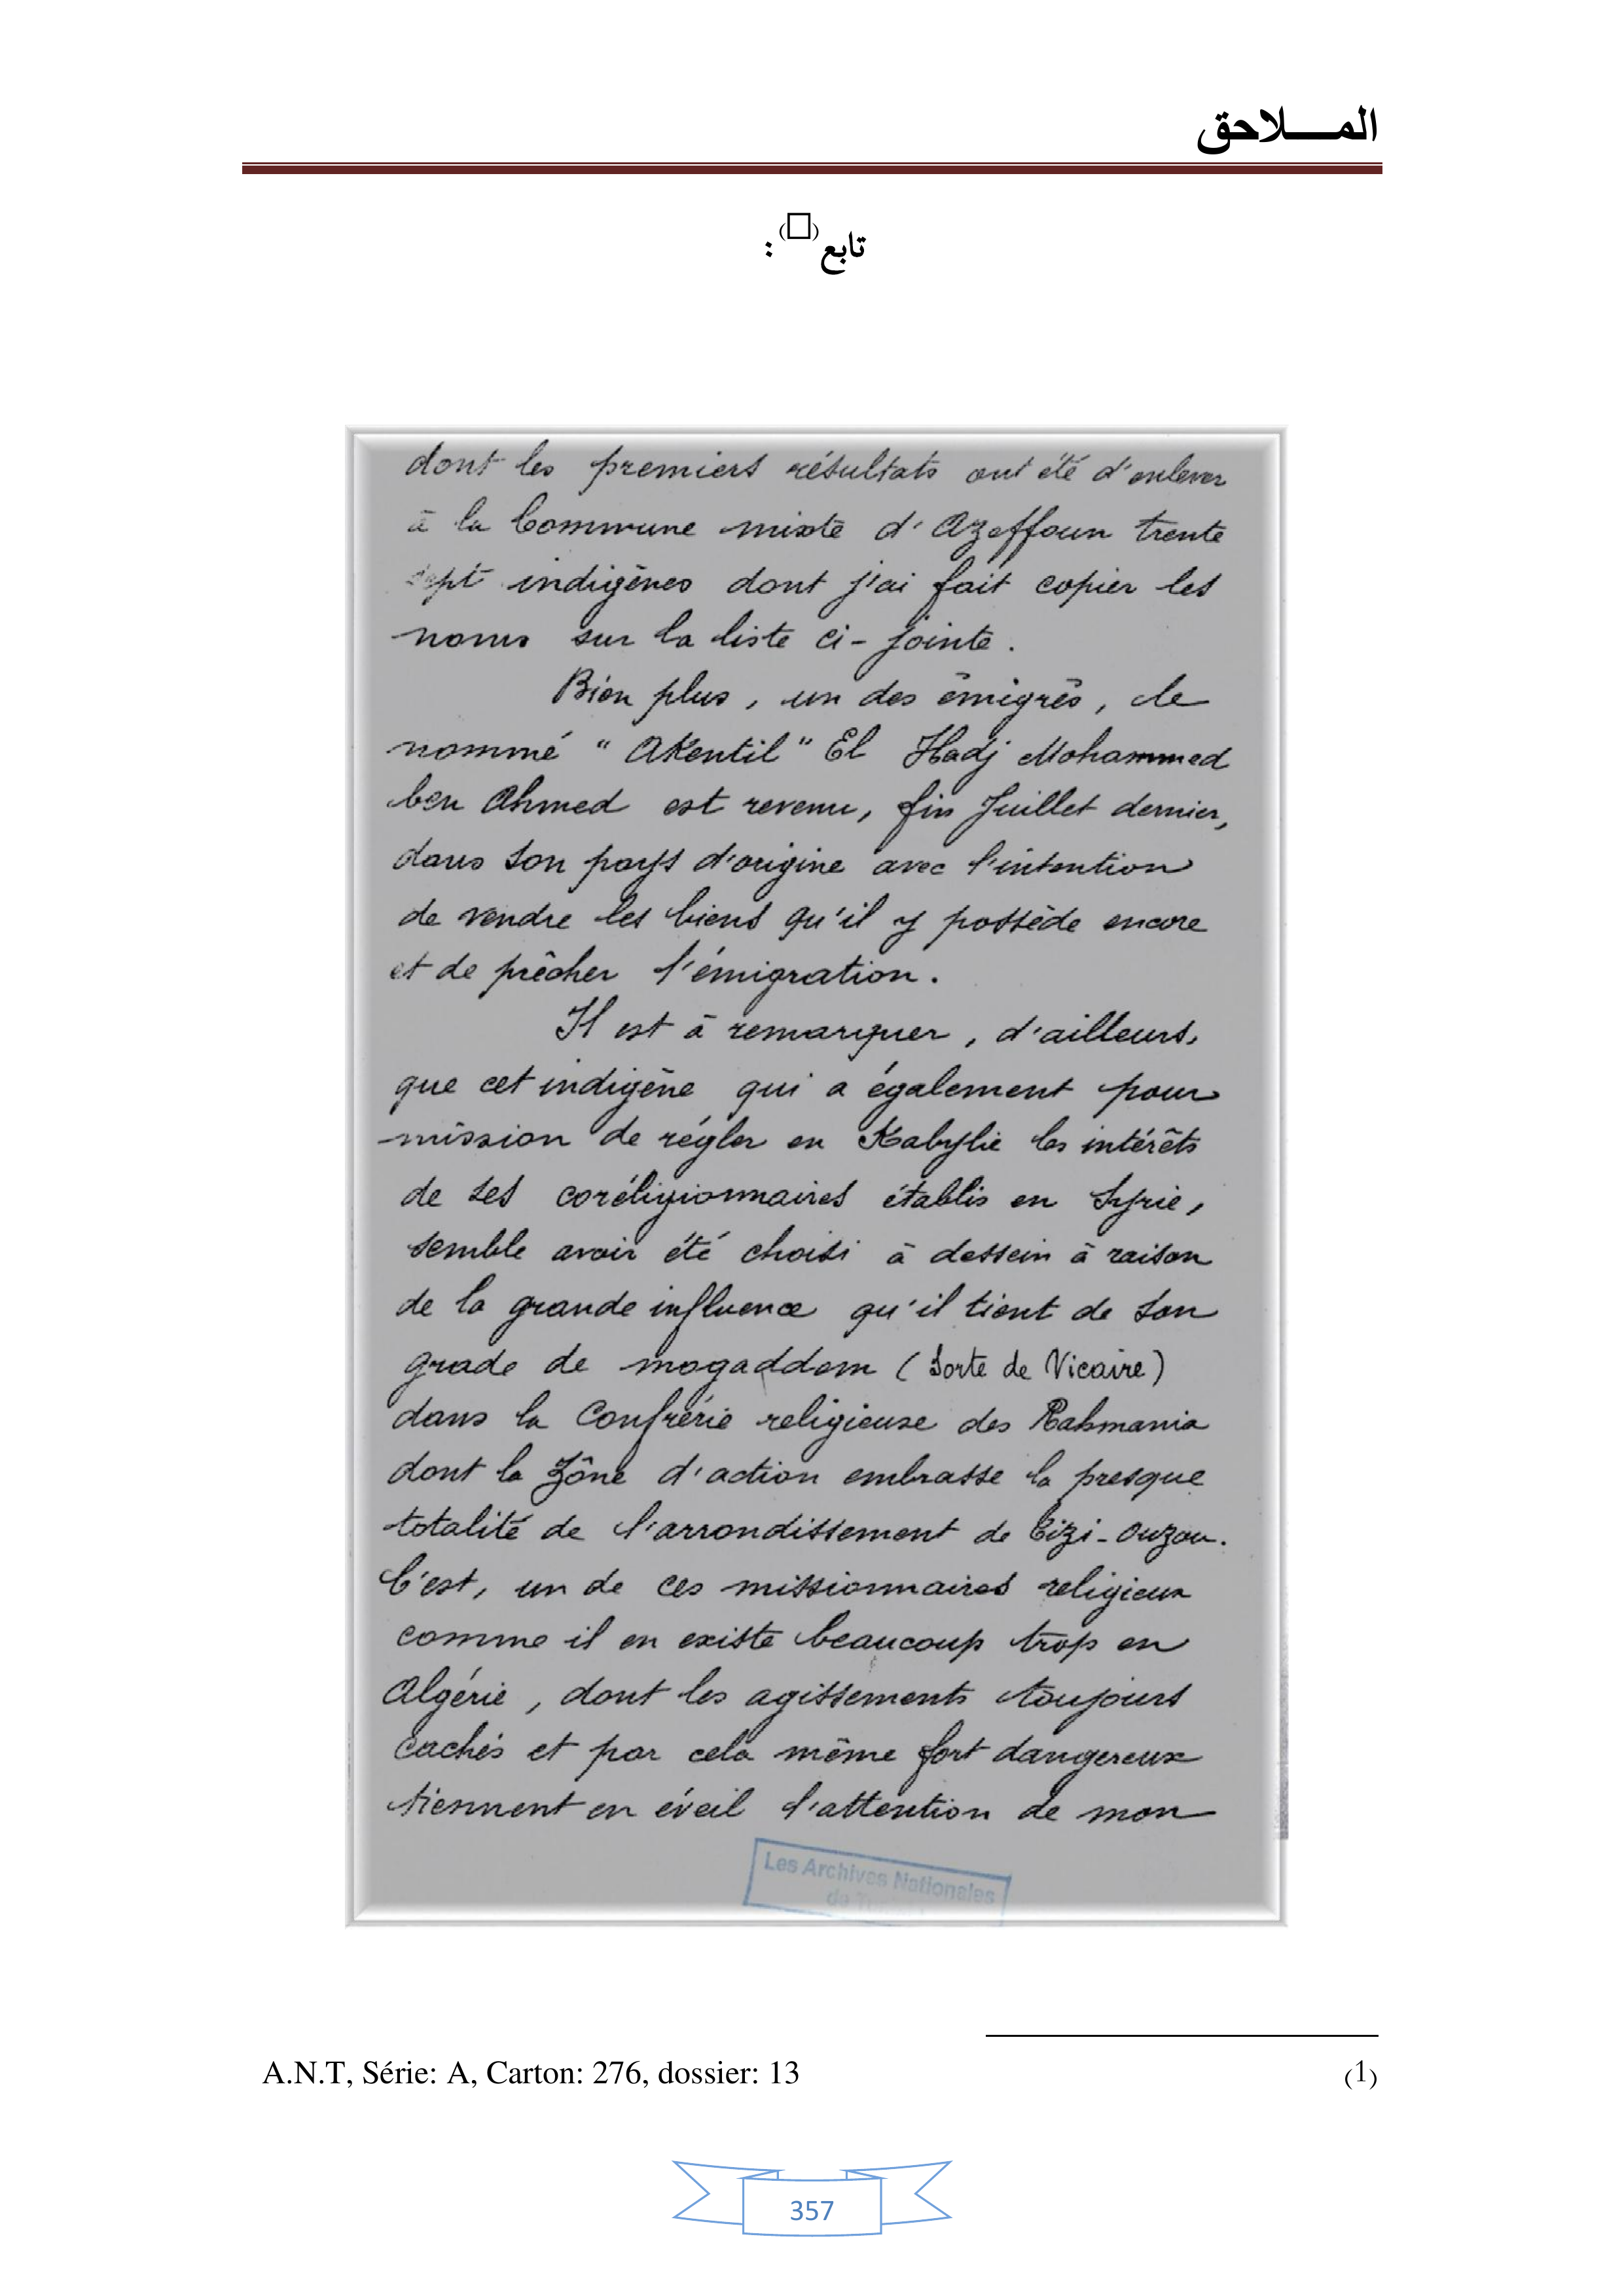 المـــــلاحق
تابع(□) :
dont les premiers résultats ont été d'enlever
à la Commune mixte d'Azeffoun trente
sept indigènes dont j'ai fait copier les
noms sur la liste ci-jointe.
Bien plus, un des émigrés, le
nommé "AKentil" El Hadj Mohammed
ben Ahmed est revenu, fin Juillet dernier,
dans son pays d'origine avec l'intention
de vendre les biens qu'il y possède encore
et de prêcher l'émigration.
Il est à remarquer, d'ailleurs,
que cet indigène qui a également pour
mission de régler en Kabylie les intérêts
de ses coréligionnaires établis en Syrie,
semble avoir été choisi à dessein à raison
de la grande influence qu'il tient de son
grade de mogaddem (Sorte de Vicaire)
dans la Confrérie religieuse des Rahmania
dont la zône d'action embrasse la presque
totalité de l'arrondissement de Tizi-Ouzou.
C'est, un de ces missionnaires religieux
comme il en existe beaucoup trop en
Algérie, dont les agissements toujours
cachés et par cela même fort dangereux
tiennent en éveil l'attention de mon
Les Archives Nationales
de
(1) A.N.T, Série: A, Carton: 276, dossier: 13
357